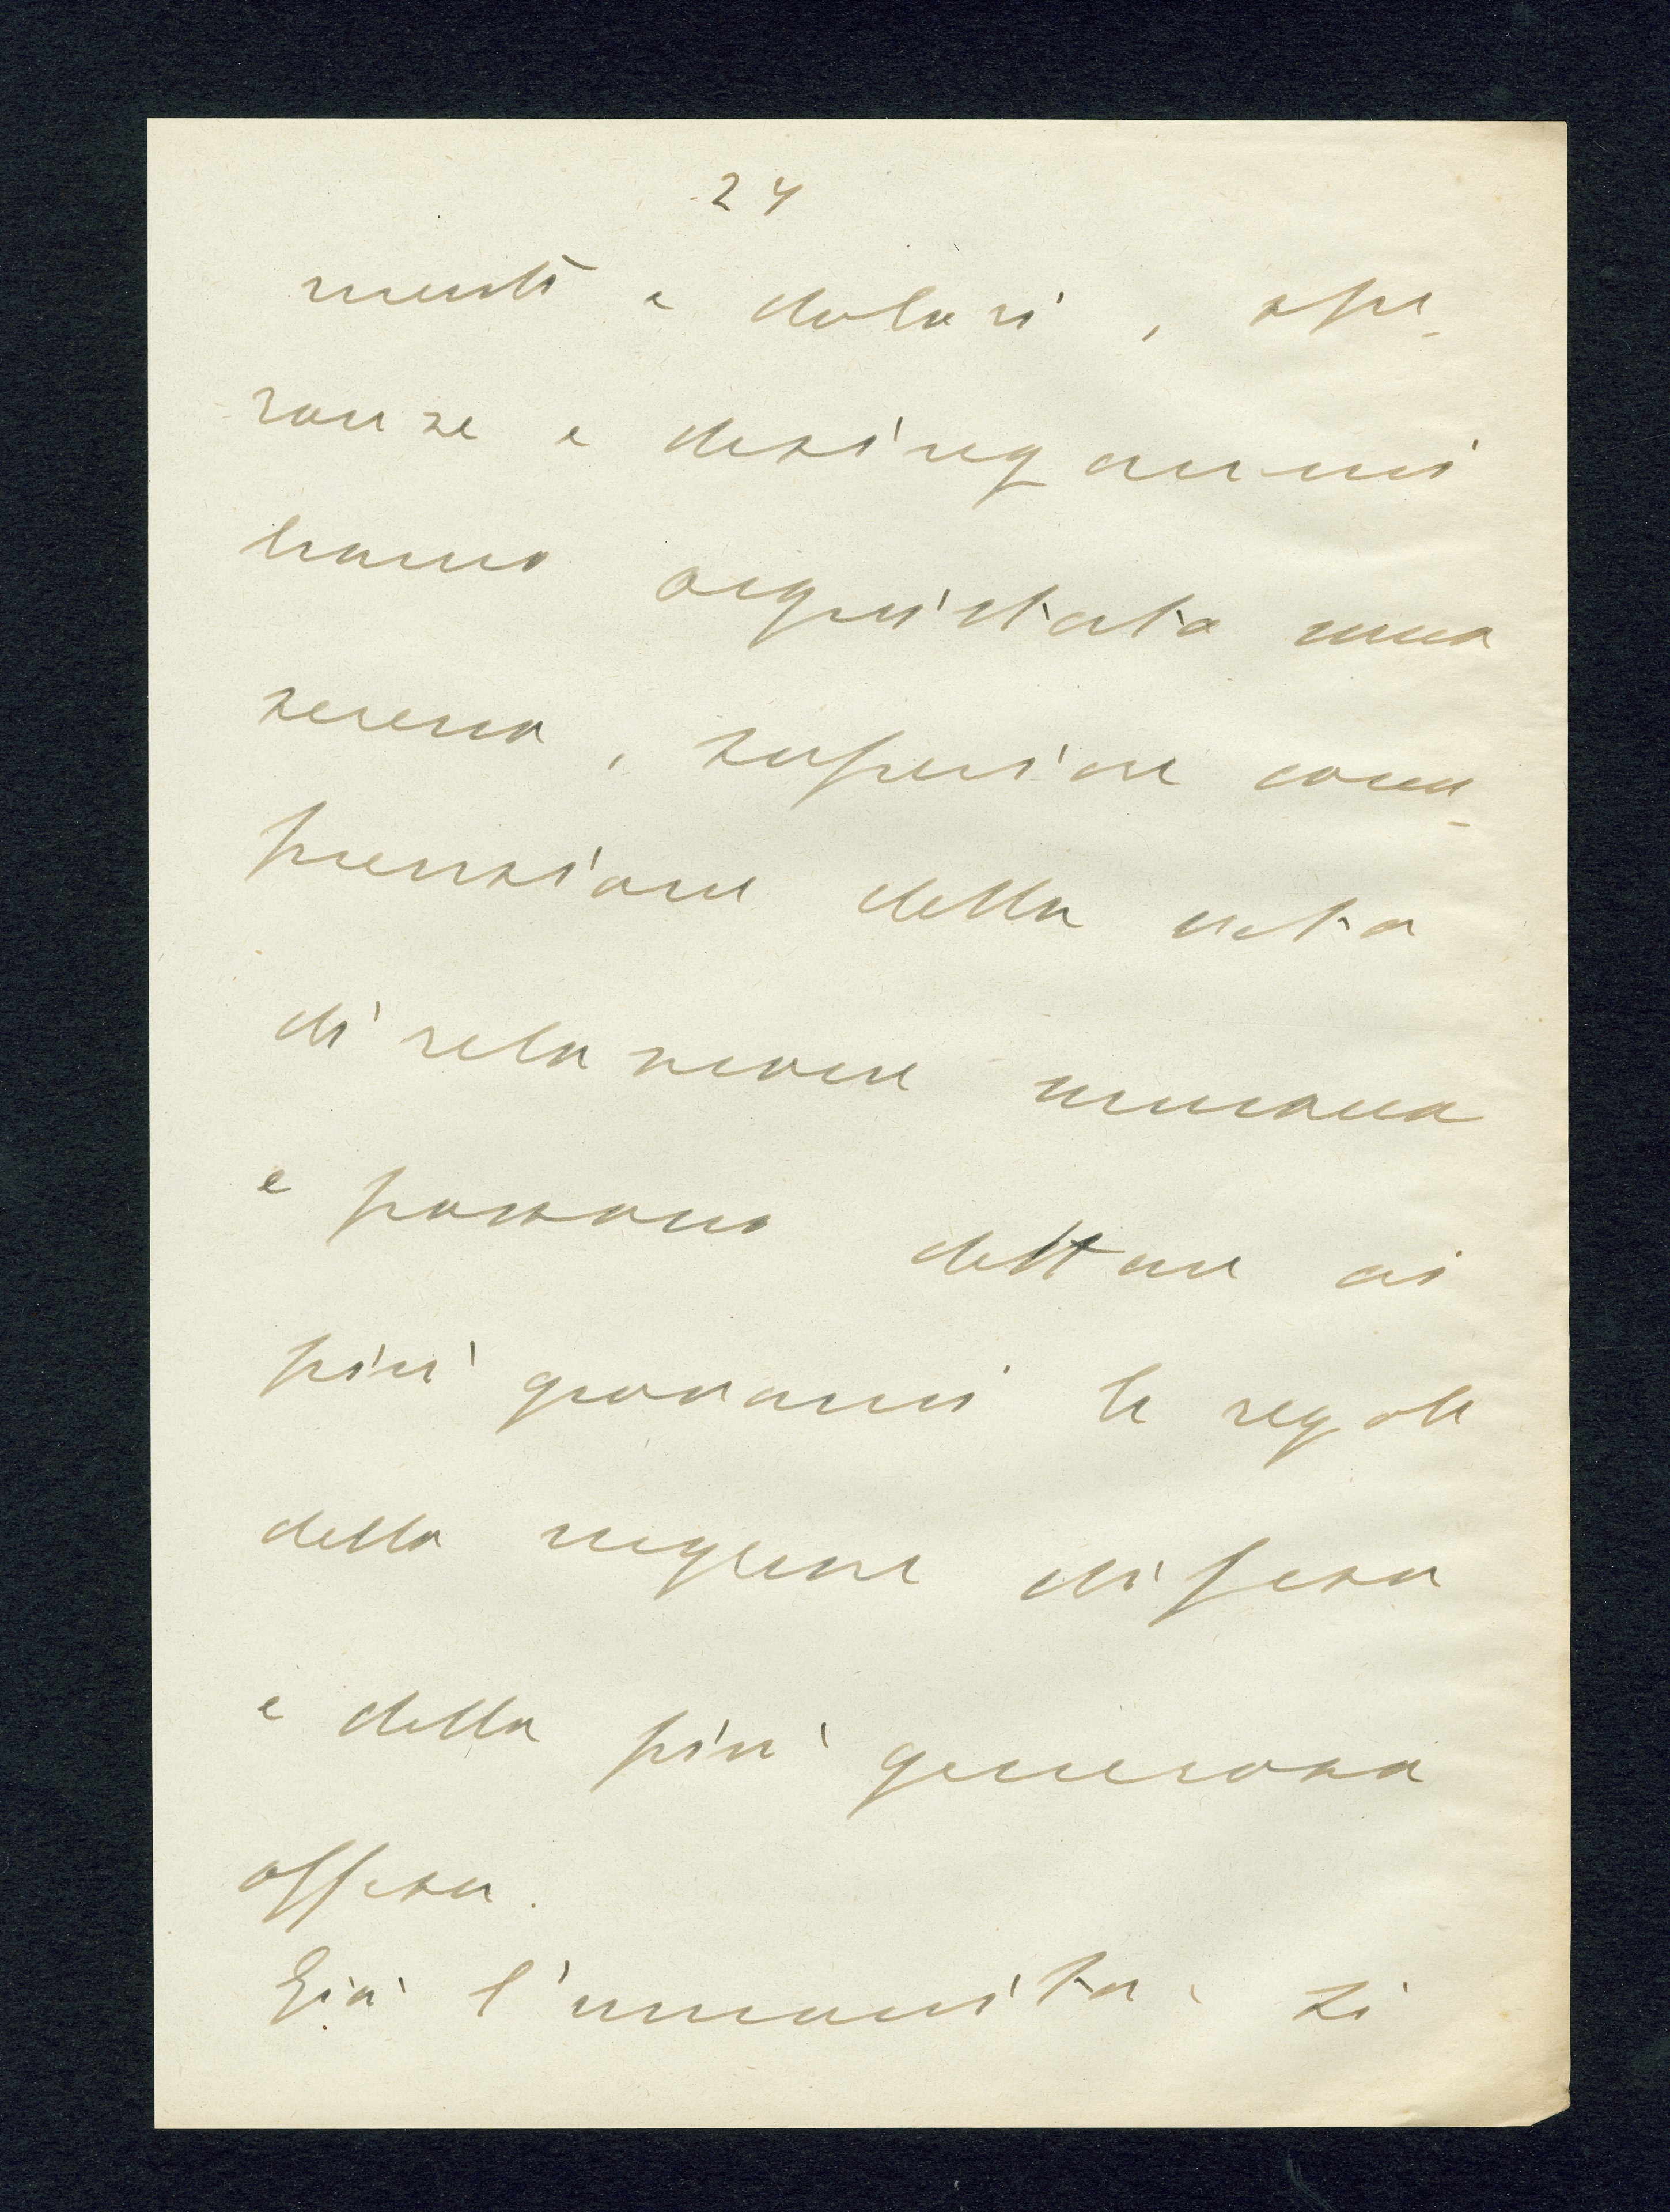 24
menti e dolori, spe-
ranze e desinganni
hanno acquistato una
serena, superiore com-
prensione della vita
di relazione umana
e possono dettare ai
più giovani le regole
della migliore difesa
e della più generosa
offesa.
Già l'umanità si